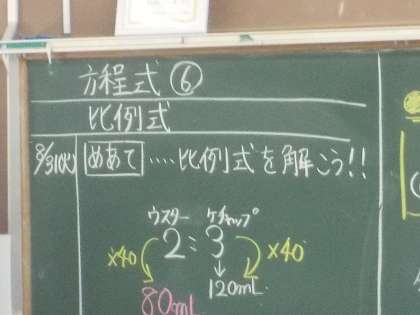 方程式⑥
比例式
8/31(火) めあて ‥‥比例式を解こう!!
ウスター ケチャップ
2:3
×40 ×40
↓
80mL 120mL